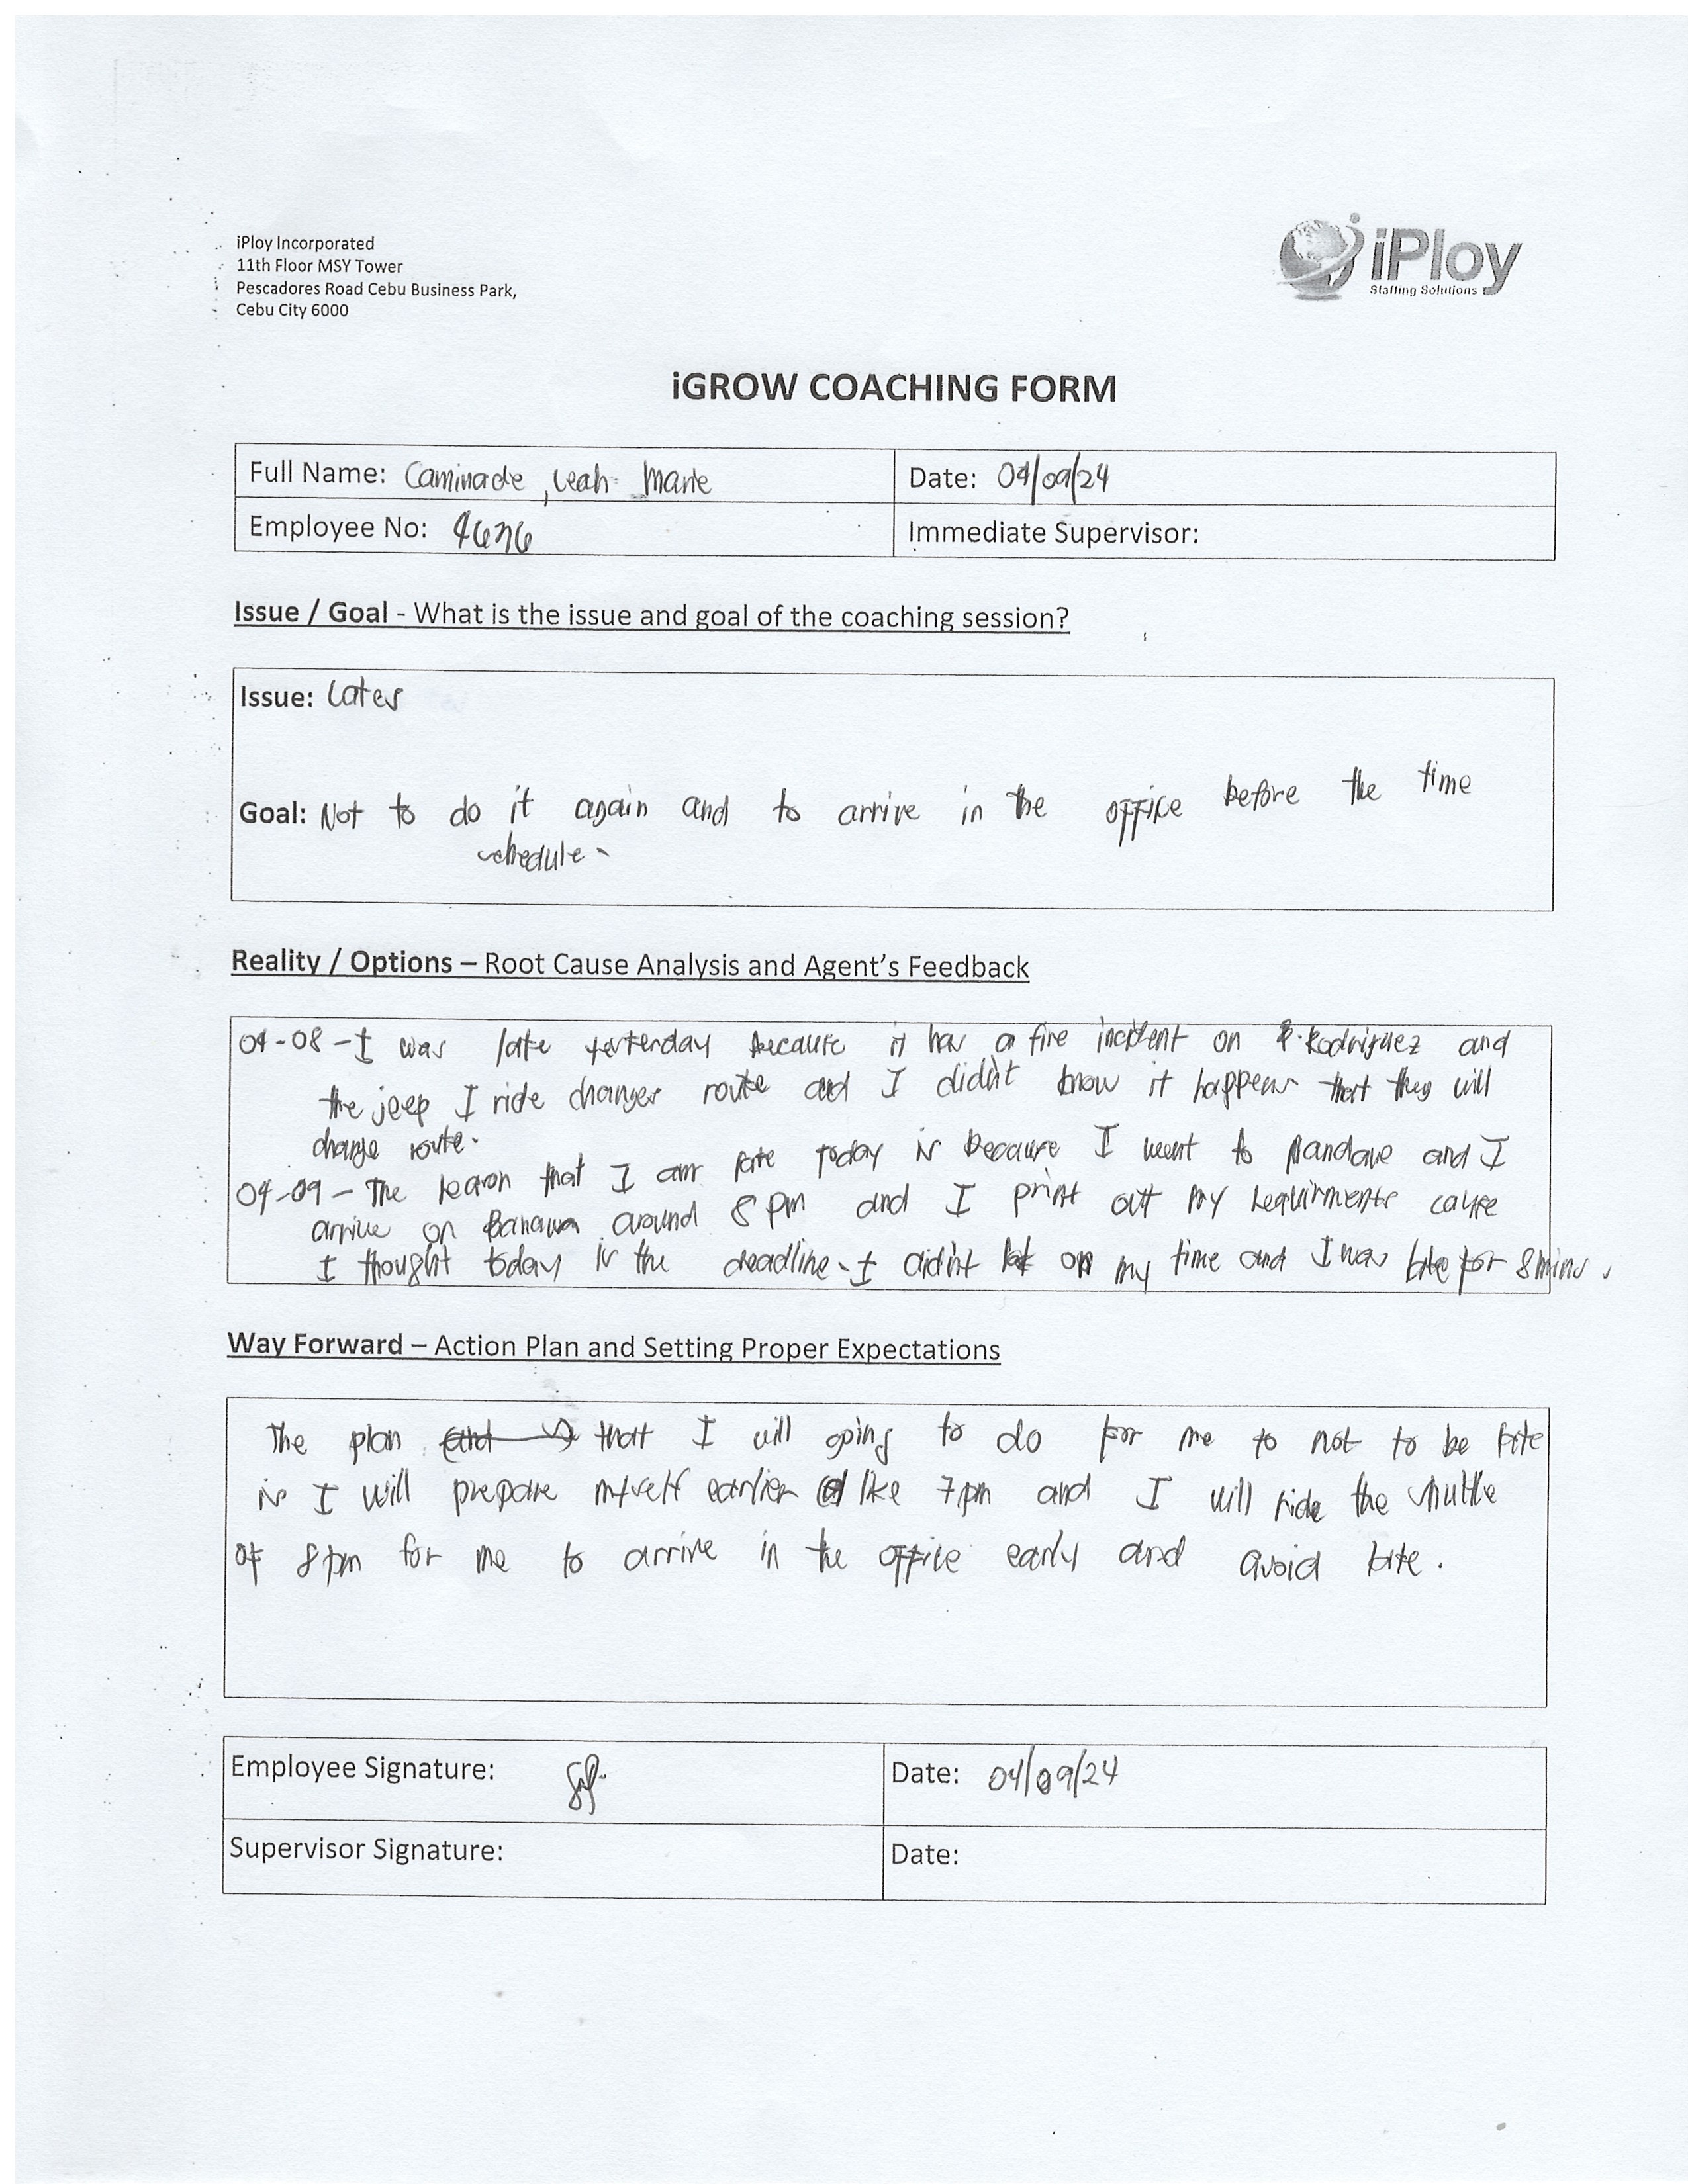 iPloy Incorporated
11th Floor MSY Tower
Pescadores Road Cebu Business Park,
Cebu City 6000
iPloy
Staffing Solutions
iGROW COACHING FORM
Full Name: Caminade, Leah Marie
Date: 04/09/24
Employee No: 4676
Immediate Supervisor:
Issue / Goal - What is the issue and goal of the coaching session?
Issue: Lates
Goal: Not to do it again and to arrive in the office before the time
schedule.
Reality / Options – Root Cause Analysis and Agent's Feedback
04-08 - I was late yesterday because it has a fire incident on Rodriguez and
the jeep I ride changes route and I didn't know it happens that they will
change route.
04-09 - The reason that I am late today is because I went to Mandaue and I
arrive on Banawa around 8pm and I print out my requirments cause
I thought today is the deadline. I didn't on my time and I was late for 8mins.
Way Forward – Action Plan and Setting Proper Expectations
The plan that I will going to do for me to not to be late
is I will prepare myself earlier like 7pm and I will ride the shuttle
of 8pm for me to arrive in the office early and avoid late.
Employee Signature:
Date: 04/09/24
Supervisor Signature:
Date: